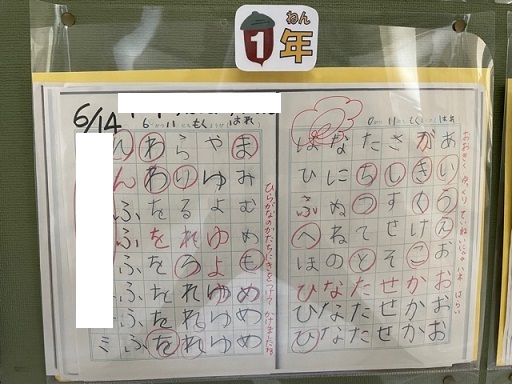 わん
1年
6/14
はれ
あいうえおおおお
がきくけこかかか
さしすせそせせせ
たちつてとたたた
なにぬねのななな
はひふへほひひひ
もく
はれ
ひらがなのかたちにきをつけてかけましたね
まみむめもめめめ
やゆよゆよゆゆゆ
らりるれろれれれ
わわをををををを
んんふふふふふふ